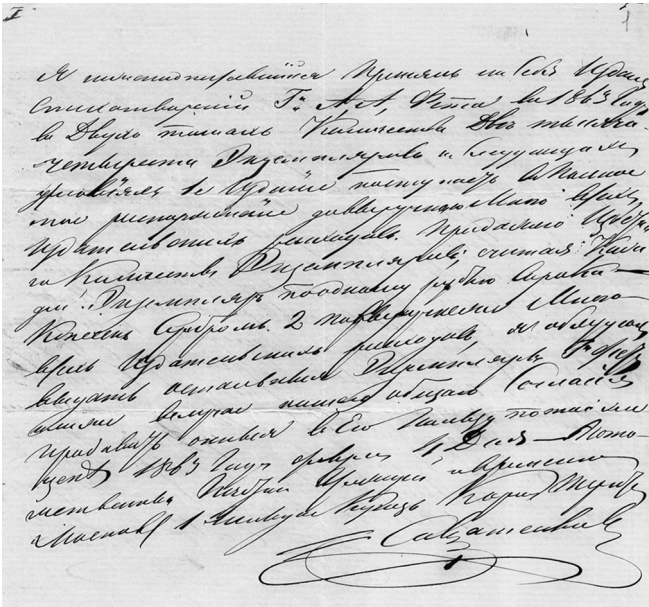 I
1
Я нижеподписавшийся принялъ на Себя Издание
Стихотворений Гн. А. А. Фета въ 1863 Году
въ Двухъ томахъ Количества Две тысячи
четыреста Экземпляровъ на Следующихъ
условияхъ 1е Издание поступаетъ в полное
мое распоряжение до выручки Мною всехъ
издательскихъ расходовъ продажею
го Количества Экземпляровъ, считая Каж
дый Экземпляръ по одному рублю Сорока
Копеекъ Сребромъ. 2 по выручке Мною
всехъ Издательскихъ расходовъ, я обязуюсь
выдать остальные Экземпляры Г. Фету
или в случае нашего общаго Согласия
продавать оныя в Его пользу
1863 Года Февраля 4 Дня
Москов 1 гильдии Купецъ
Солдатенковъ